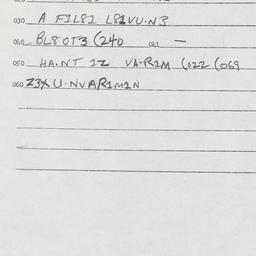 030 A F1L81 L81VU·N3
040 BL80T3 (240 042 —
050 HA·NT 1Z VA·R1M (022 (069
060 Z3X U·NVAR1M1N